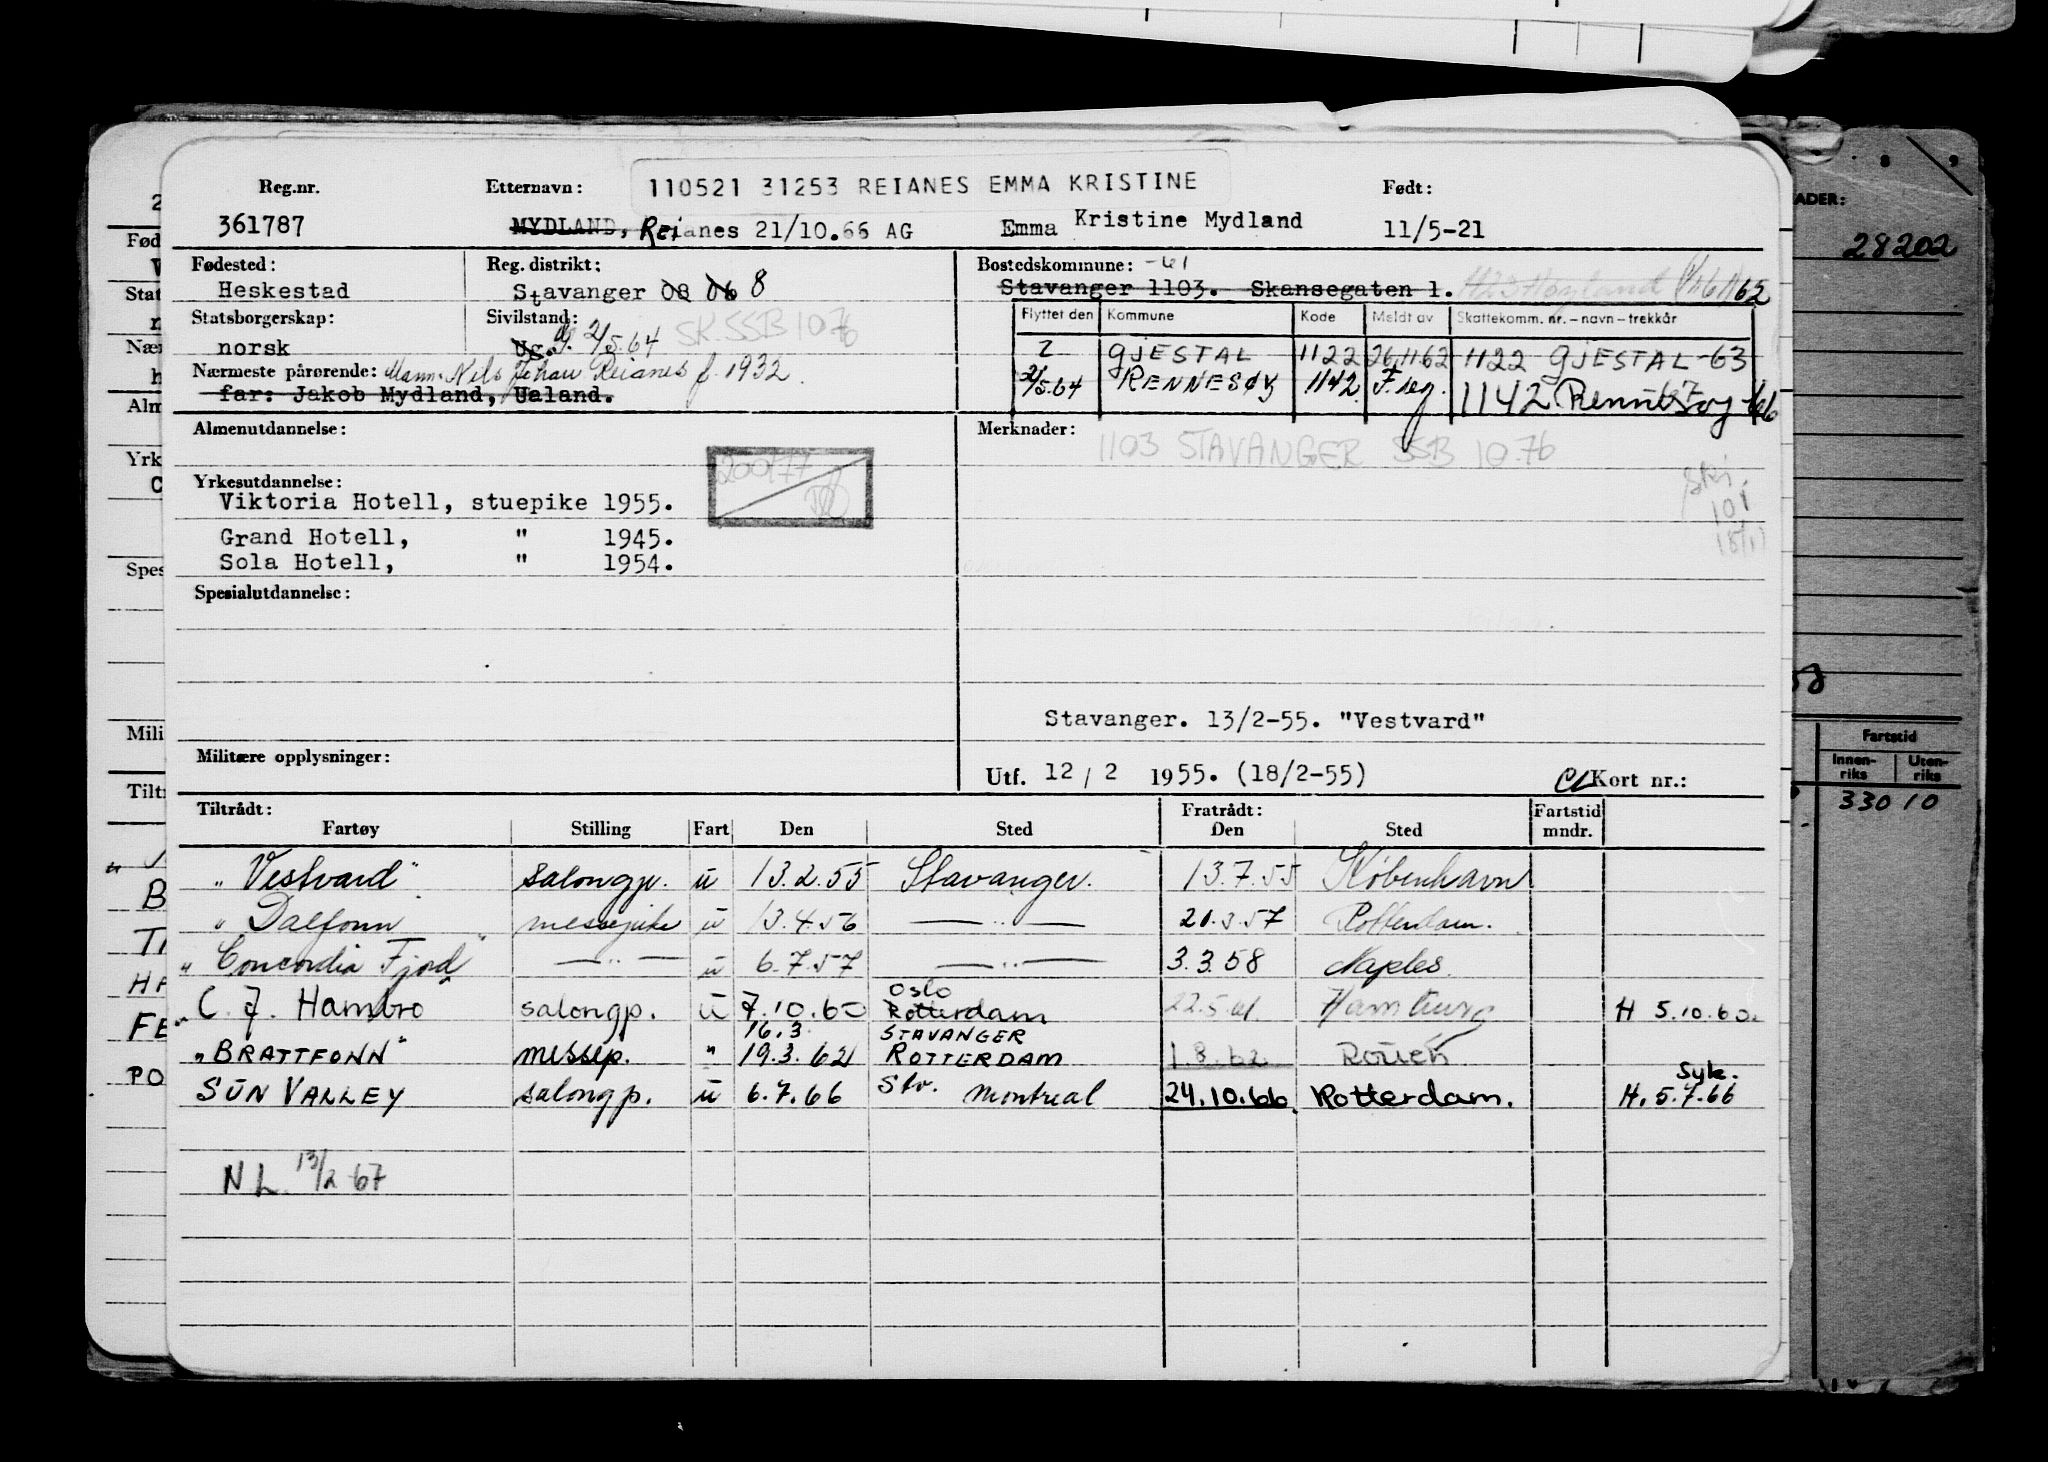 Reg.nr. Etternavn: 110521 31253 REIANES EMMA KRISTINE Født:
361787 MYDLAND, Reianes 21/10.66 AG Emma Kristine Mydland 11/5-21
Fødested: Reg. distrikt: Bostedskommune: -61
Heskestad Stavanger 08 06 8 Stavanger 1103. Skansegaten 1. 62
Statsborgerskap: Sivilstand: Flyttet den Kommune Kode Meldt av Skattekomm. nr. – navn – trekkår
norsk Ug. g. 2/5.64 SK. SSB 10 76 2 GJESTAL 1122 26/11 62 1122 GJESTAL -63
Nærmeste pårørende: Mann. Nels Johan Reianes f. 1932. 2/5.64 RENNESØY 1142 F. reg. 1142 Rennesøy -66 67
far: Jakob Mydland, Ualand.
Almenutdannelse: Merknader: 1103 STAVANGER SSB 10.76
Yrkesutdannelse:
Viktoria Hotell, stuepike 1955.
Grand Hotell, " 1945.
Sola Hotell, " 1954.
Spesialutdannelse:
Stavanger. 13/2-55. "Vestvard"
Militære opplysninger: Utf. 12 / 2 1955. (18/2-55) Kort nr.:
Tiltrådt: Fratrådt: Fartstid
Fartøy Stilling Fart Den Sted Den Sted mndr.
"Vestvard" salongp. u 13.2.55 Stavanger. 13.7.55 København
"Dalfonn messepike u 13.4.56 — " — 21.3.57 Rotterdam.
"Concordia Fjord" — " — u 6.7.57 — " — 3.3.58 Naples.
Oslo
C. J. Hambro salongp. u 7.10.60 Rotterdam 22.5.61 Hamburg H 5.10.60.
16.3 STAVANGER
"BRATTFONN" messep. " 19.3.62 ROTTERDAM 1.8.62 Rouen
Syk.
SUN VALLEY salongp. u 6.7.66 Stv. Montreal 24.10.66. Rotterdam. H. 5.7.66
N L. 13/2-67
ADER:
28202
Fartstid
Innen-riks Uten-riks
330 10
Fød
Stat
Nær
Alm
Yrk
Spes
Mili
Tilt